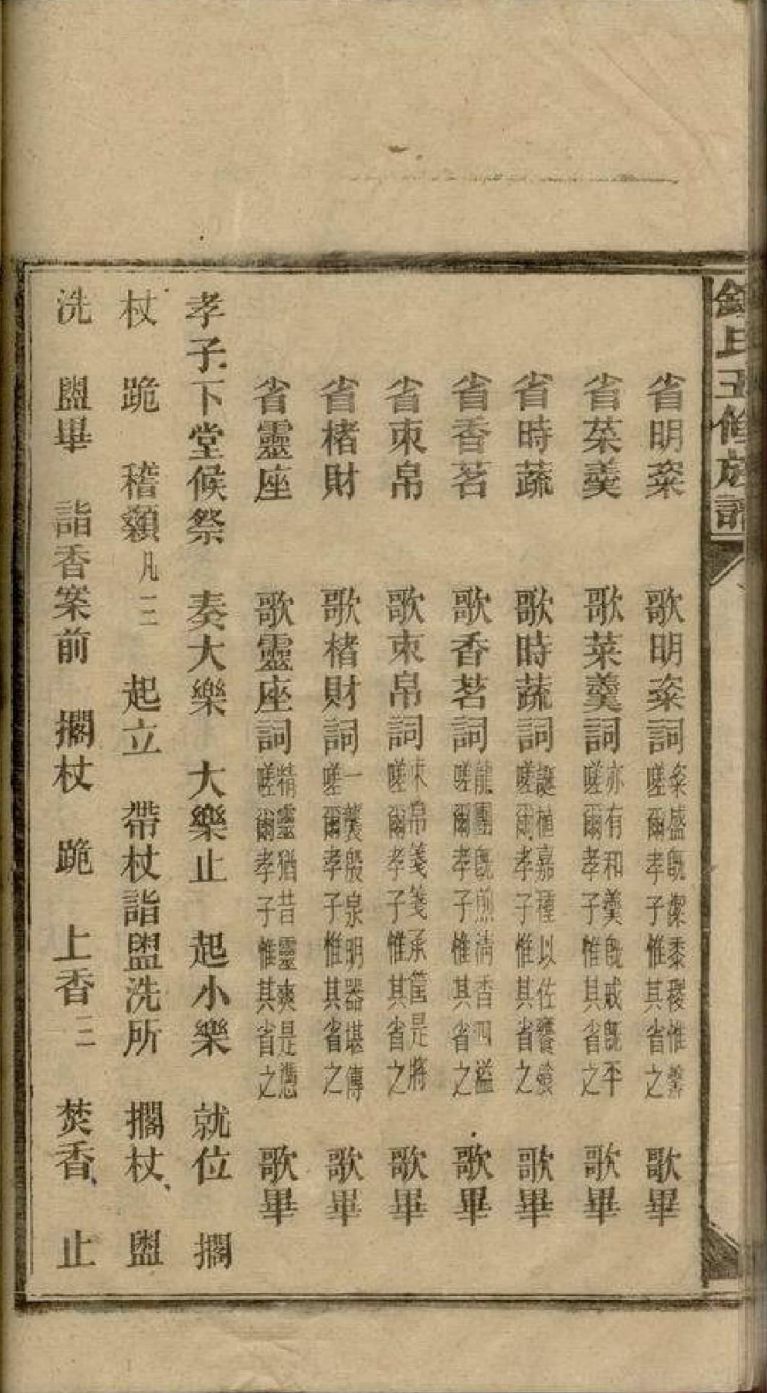 氏五修族譜
省明粢 歌明粢詞 粢盛既潔黍稷惟馨嗟爾孝子惟其省之 歌畢
省菜羹 歌菜羹詞 亦有和羹既戒既平嗟爾孝子惟其省之 歌畢
省時蔬 歌時蔬詞 誕植嘉種以佐饗嗟爾孝子惟其省之 歌畢
省香茗 歌香茗詞 龍團既煎清香四溢嗟爾孝子惟其省之 歌畢
省束帛 歌束帛詞 束帛箋箋承筐是將嗟爾孝子惟其省之 歌畢
省楮財 歌楮財詞 一襲殷泉明器堪傳嗟爾孝子惟其省之 歌畢
省靈座 歌靈座詞 精靈猶昔靈爽是憑嗟爾孝子惟其省之 歌畢
孝子下堂候祭 奏大樂 大樂止 起小樂 就位 擱
杖 跪 稽顙凡三 起立 帶杖詣盥洗所 擱杖 盥
洗 盥畢 詣香案前 擱杖 跪 上香三 焚香 止